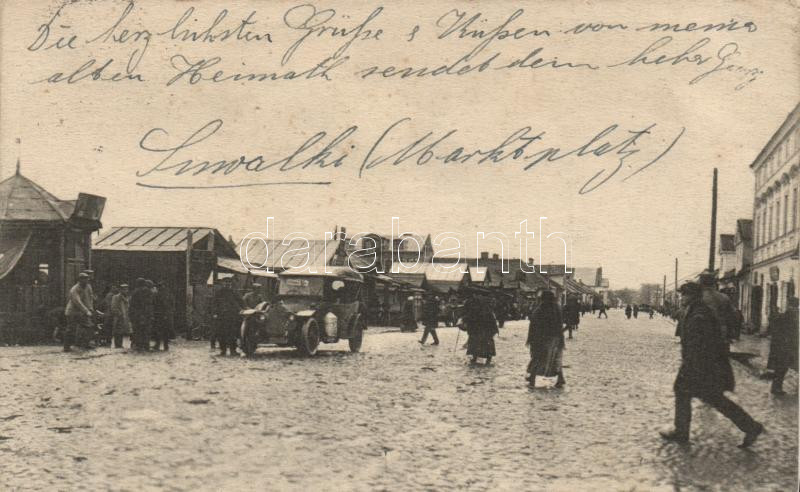 Die herzlichsten Grüße & Küßen von meine
alten Heimath sendet dein lieber
Suwalki (Marktplatz)
darabanth